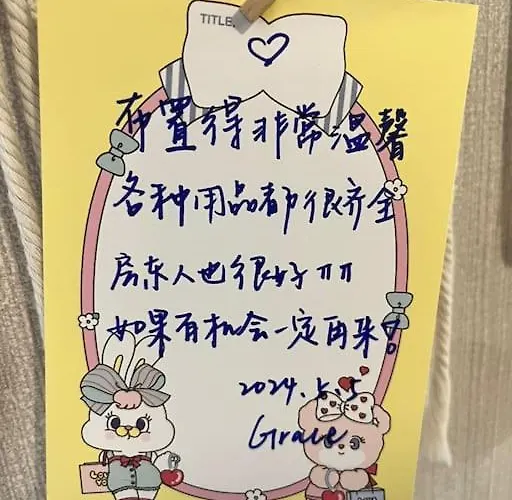 TITLE.
♡
布置得非常温馨
各种用品都很齐全
房东人也很好 π π
如果有机会一定再来!
2024.5.5
Grace